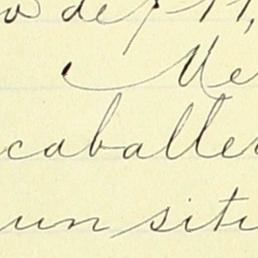 de
Me
caballe
un situ